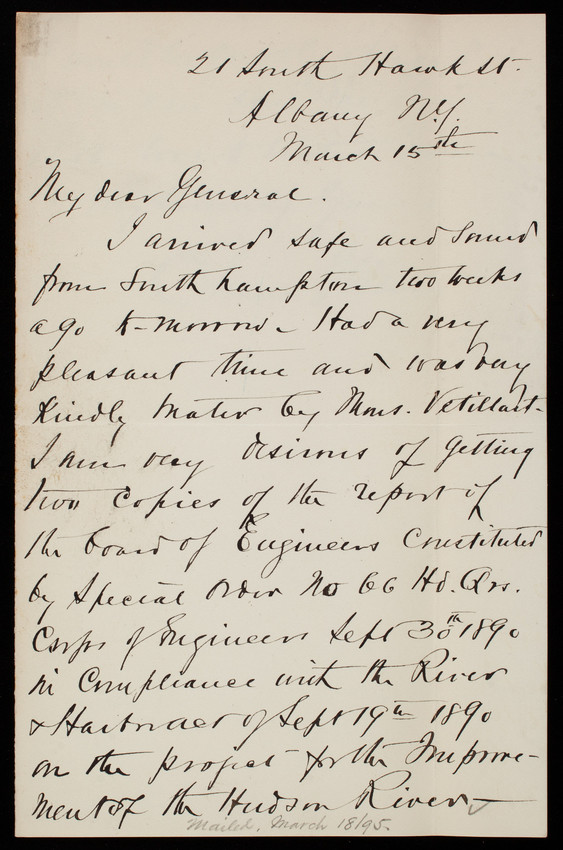 21 South Hawk St.
Albany N.Y.
March 15th
My dear General.
I arrived safe and sound
from Southhampton two weeks
ago to-morrow - Had a very
pleasant time and was very
kindly by Mons. Vetillart-
I am very desirous of getting
two copies of the report of
the board of Engineers Constituted
by Special order No 66 Hd. Qrs.
Corps of Engineers Sept 30th 1890
in Compliance with the River
& Harbor act of Sept 19th 1890
on the project for the Improve-
ment of the Hudson River -
Mailed, March 18/95.